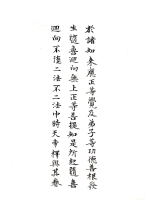 於諸如來應正等覺及弟子等功德善根發
生隨喜迴向無上正等菩提如是所起隨喜
迴向不墮二法不二法中時天帝釋與其眷